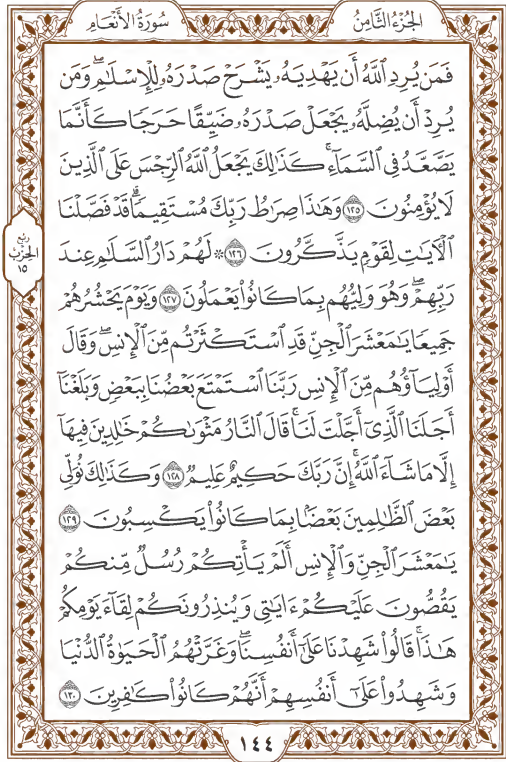 سُورَةُ الأَنْعَامِ
الجُزْءُ الثَّامِنُ
فَمَن يُرِدِ ٱللَّهُ أَن يَهْدِيَهُۥ يَشْرَحْ صَدْرَهُۥ لِلْإِسْلَٰمِۖ وَمَن
يُرِدْ أَن يُضِلَّهُۥ يَجْعَلْ صَدْرَهُۥ ضَيِّقًا حَرَجًا كَأَنَّمَا
يَصَّعَّدُ فِي ٱلسَّمَآءِۚ كَذَٰلِكَ يَجْعَلُ ٱللَّهُ ٱلرِّجْسَ عَلَى ٱلَّذِينَ
لَا يُؤْمِنُونَ ١٢٥ وَهَٰذَا صِرَٰطُ رَبِّكَ مُسْتَقِيمًاۗ قَدْ فَصَّلْنَا
ٱلْأٓيَٰتِ لِقَوْمٍ يَذَّكَّرُونَ ١٢٦ ۞ لَهُمْ دَارُ ٱلسَّلَٰمِ عِندَ
رَبِّهِمْۖ وَهُوَ وَلِيُّهُم بِمَا كَانُوا۟ يَعْمَلُونَ ١٢٧ وَيَوْمَ يَحْشُرُهُمْ
جَمِيعًا يَٰمَعْشَرَ ٱلْجِنِّ قَدِ ٱسْتَكْثَرْتُم مِّنَ ٱلْإِنسِۖ وَقَالَ
أَوْلِيَآؤُهُم مِّنَ ٱلْإِنسِ رَبَّنَا ٱسْتَمْتَعَ بَعْضُنَا بِبَعْضٍ وَبَلَغْنَآ
أَجَلَنَا ٱلَّذِيٓ أَجَّلْتَ لَنَاۚ قَالَ ٱلنَّارُ مَثْوَىٰكُمْ خَٰلِدِينَ فِيهَآ
إِلَّا مَا شَآءَ ٱللَّهُۗ إِنَّ رَبَّكَ حَكِيمٌ عَلِيمٌ ١٢٨ وَكَذَٰلِكَ نُوَلِّي
بَعْضَ ٱلظَّٰلِمِينَ بَعْضًۢا بِمَا كَانُوا۟ يَكْسِبُونَ ١٢٩
يَٰمَعْشَرَ ٱلْجِنِّ وَٱلْإِنسِ أَلَمْ يَأْتِكُمْ رُسُلٌ مِّنكُمْ
يَقُصُّونَ عَلَيْكُمْ ءَايَٰتِي وَيُنذِرُونَكُمْ لِقَآءَ يَوْمِكُمْ
هَٰذَاۚ قَالُوا۟ شَهِدْنَا عَلَىٰٓ أَنفُسِنَاۖ وَغَرَّتْهُمُ ٱلْحَيَوٰةُ ٱلدُّنْيَا
وَشَهِدُوا۟ عَلَىٰٓ أَنفُسِهِمْ أَنَّهُمْ كَانُوا۟ كَٰفِرِينَ ١٣٠
رُبع
الحِزْب
١٥
١٤٤